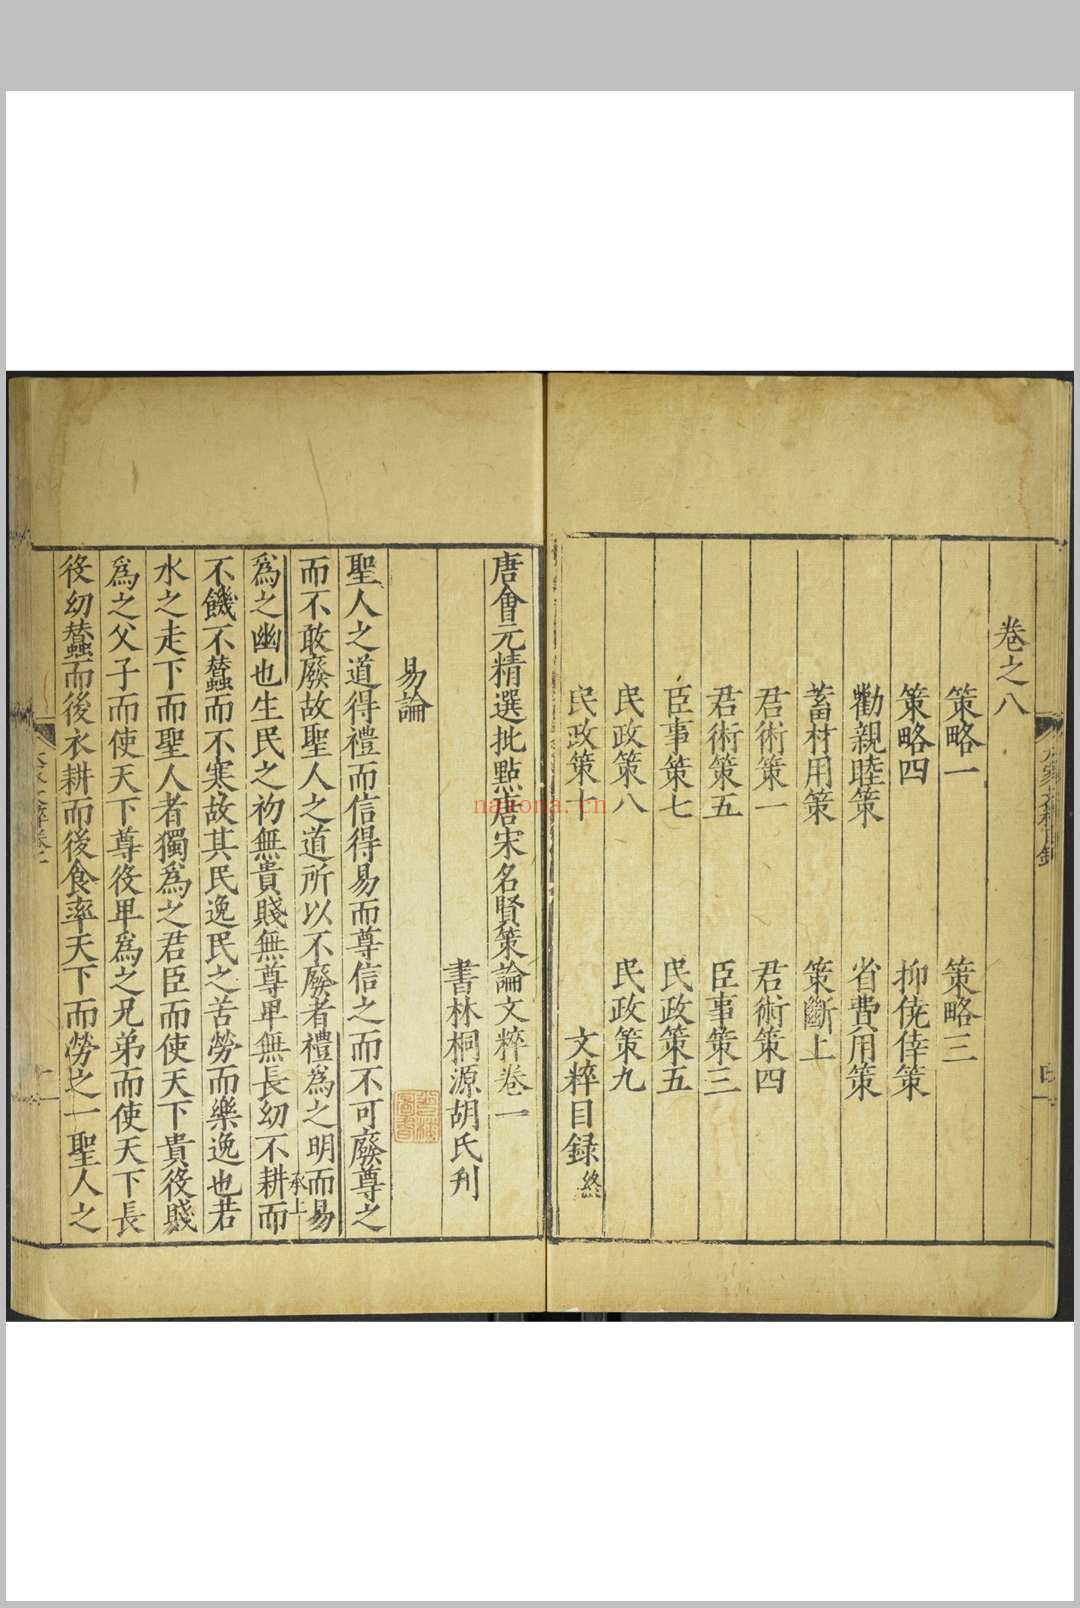 卷之八
策略一　策略三
策略四　抑僥倖策
勸親睦策　省費用策
蓄材用策　策斷上
君術策一　君術策四
君術策五　臣事策三
臣事策七　民政策五
民政策八　民政策九
民政策十　文粹目録終
唐會元精選批點唐宋名賢策論文粹卷一
書林桐源胡氏刋
易論
聖人之道得禮而信得易而尊信之而不可廢尊之
而不敢廢故聖人之道所以不廢者禮爲之明而易
承上
爲之幽也生民之初無貴賤無尊卑無長幼不耕而
不饑不蠶而不寒故其民逸民之苦勞而樂逸也若
水之走下而聖人者獨爲之君臣而使天下貴役賤
爲之父子而使天下尊役卑爲之兄弟而使天下長
役幼蠶而後衣耕而後食率天下而勞之一聖人之
navona.cn